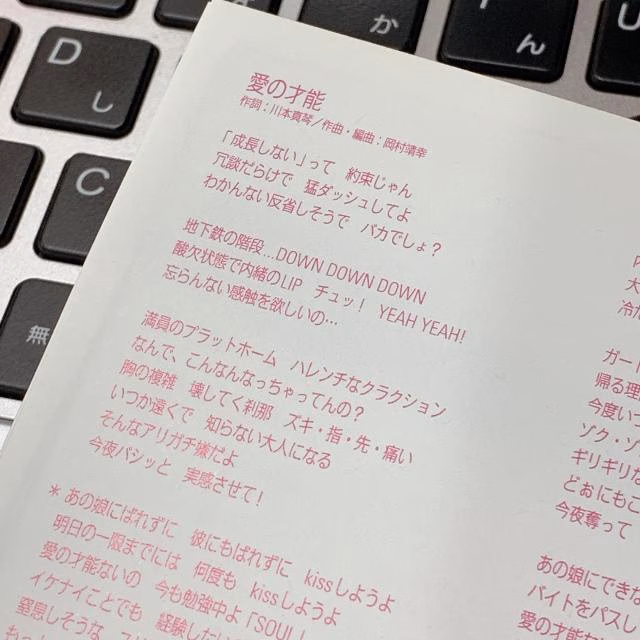 愛の才能
作詞:川本真琴/作曲・編曲:岡村靖幸
「成長しない」って 約束じゃん
冗談だらけで 猛ダッシュしてよ
わかんない反省しそうで バカでしょ?
地下鉄の階段…DOWN DOWN DOWN
酸欠状態で内緒のLIP チュッ! YEAH YEAH!
忘らんない感触を欲しいの…
満員のプラットホーム ハレンチなクラクション
なんで、こんなんなっちゃってんの?
胸の複雑 壊してく刹那 ズキ・指・先・痛い
いつか遠くで 知らない大人になる
そんなアリガチ嫌だよ
今夜バシッと 実感させて!
*あの娘にばれずに 彼にもばれずに kissしようよ
明日の一限までには 何度も kissしようよ
愛の才能ないの 今も勉強中よ「SOUL」
イケナイことでも 経験したい
窒息しそうな
大
冷た
ガート
帰る理
今度いつ
ゾク・ゾ
ギリギリな
どぉにもこ
今夜奪って
あの娘にできな
バイトをパスし
愛の才能な
D
し
C
無
か
Y
ん